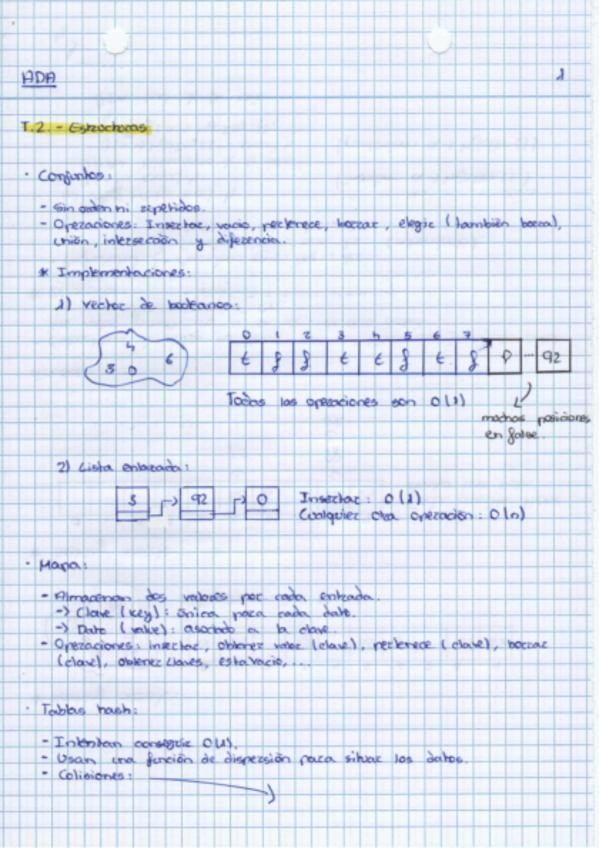 ADA 1
T.2.- Estructuras
· Conjuntos:
- Sin orden ni repetidos.
- Operaciones: Insertar, vacio, pertenece, borrar, elegir (también borra),
unión, intersección y diferencia.
* Implementaciones:
1) Vector de booleanos:
4
3 0 6
0 1 2 3 4 5 6 7
t f f t t f t f f ... 92
Todas las operaciones son O(1)
muchas posiciones
en false.
2) Lista enlazada:
3 → 92 → 0
Insertar: O(1)
Cualquier otra operación: O(n)
· Mapa:
- Almacenan dos valores por cada entrada.
-> Clave (key): única para cada dato.
-> Dato (value): asociado a la clave.
- Operaciones: insertar, obtener valor (clave), pertenece (clave), borrar
(clave), obtener claves, esta vacio,...
· Tablas hash:
- Intentan conseguir O(1).
- Usan una función de dispersión para situar los datos.
- Colisiones: